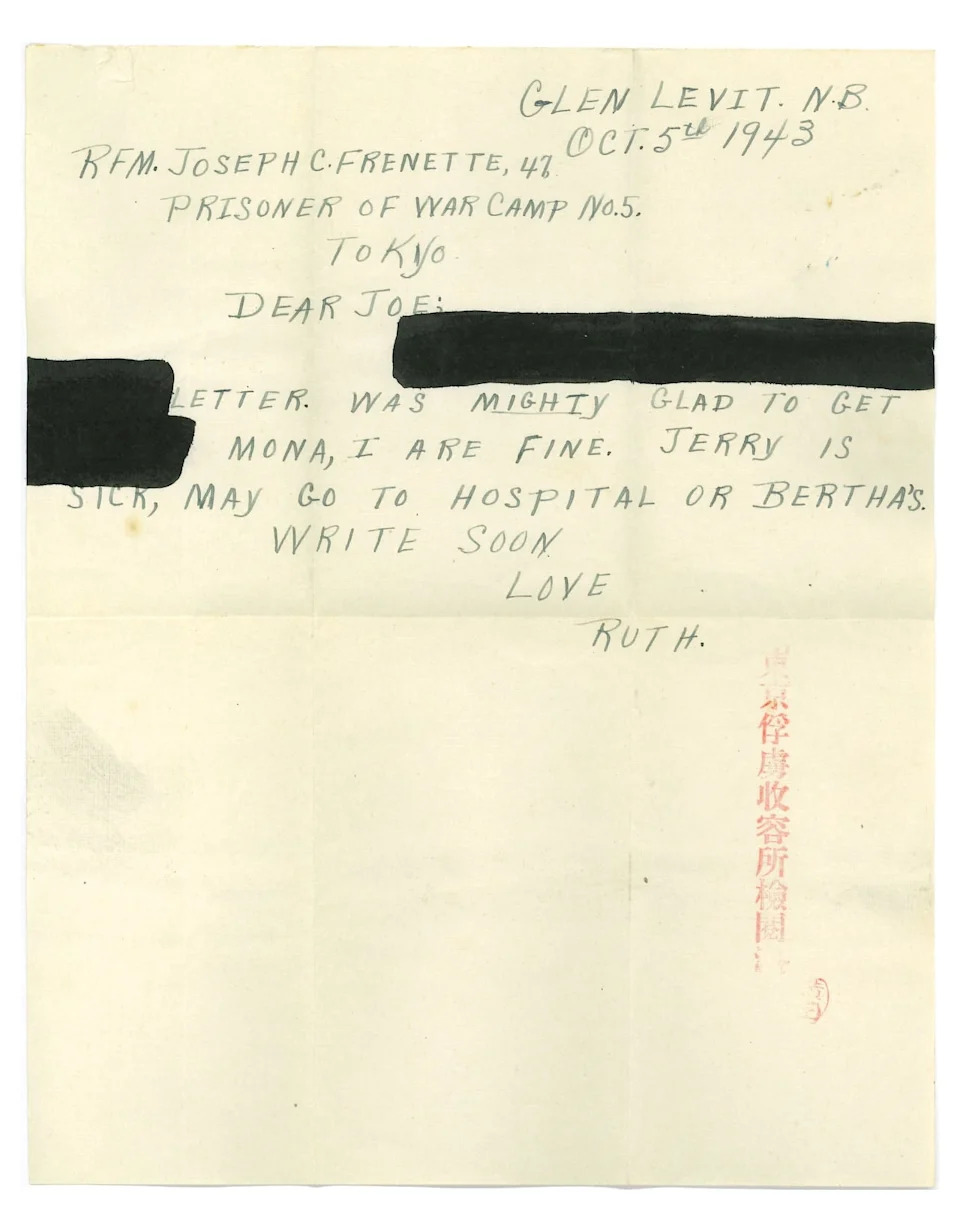 GLEN LEVIT. N.B.
OCT. 5th 1943
RFM. JOSEPH C. FRENETTE, 47
PRISONER OF WAR CAMP No. 5.
TOKYO
DEAR JOE;
LETTER. WAS MIGHTY GLAD TO GET
MONA, I ARE FINE. JERRY IS
SICK, MAY GO TO HOSPITAL OR BERTHA'S.
WRITE SOON
LOVE
RUTH.
東京俘虜收容所檢閱